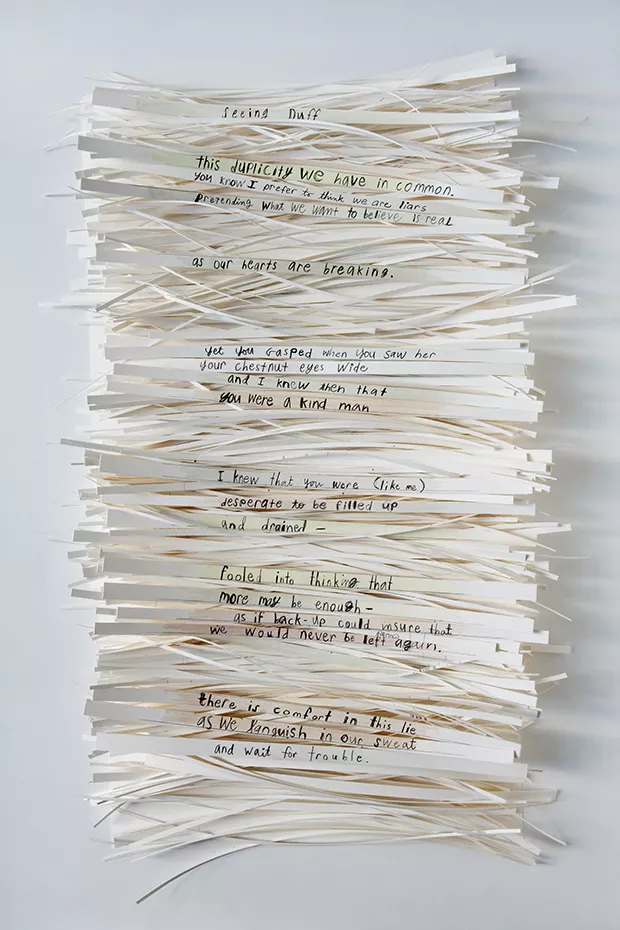 seeing Duff
this duplicity we have in common.
you know I prefer to think we are liars
pretending what we want to believe is real
as our hearts are breaking.
yet you gasped when you saw her
your chestnut eyes wide
and I knew then that
you were a kind man
I knew that you were (like me)
desperate to be filled up
and drained –
fooled into thinking that
more may be enough –
as if back-up could insure that
we would never be left again.
there is comfort in this lie
as we languish in our sweat
and wait for trouble.